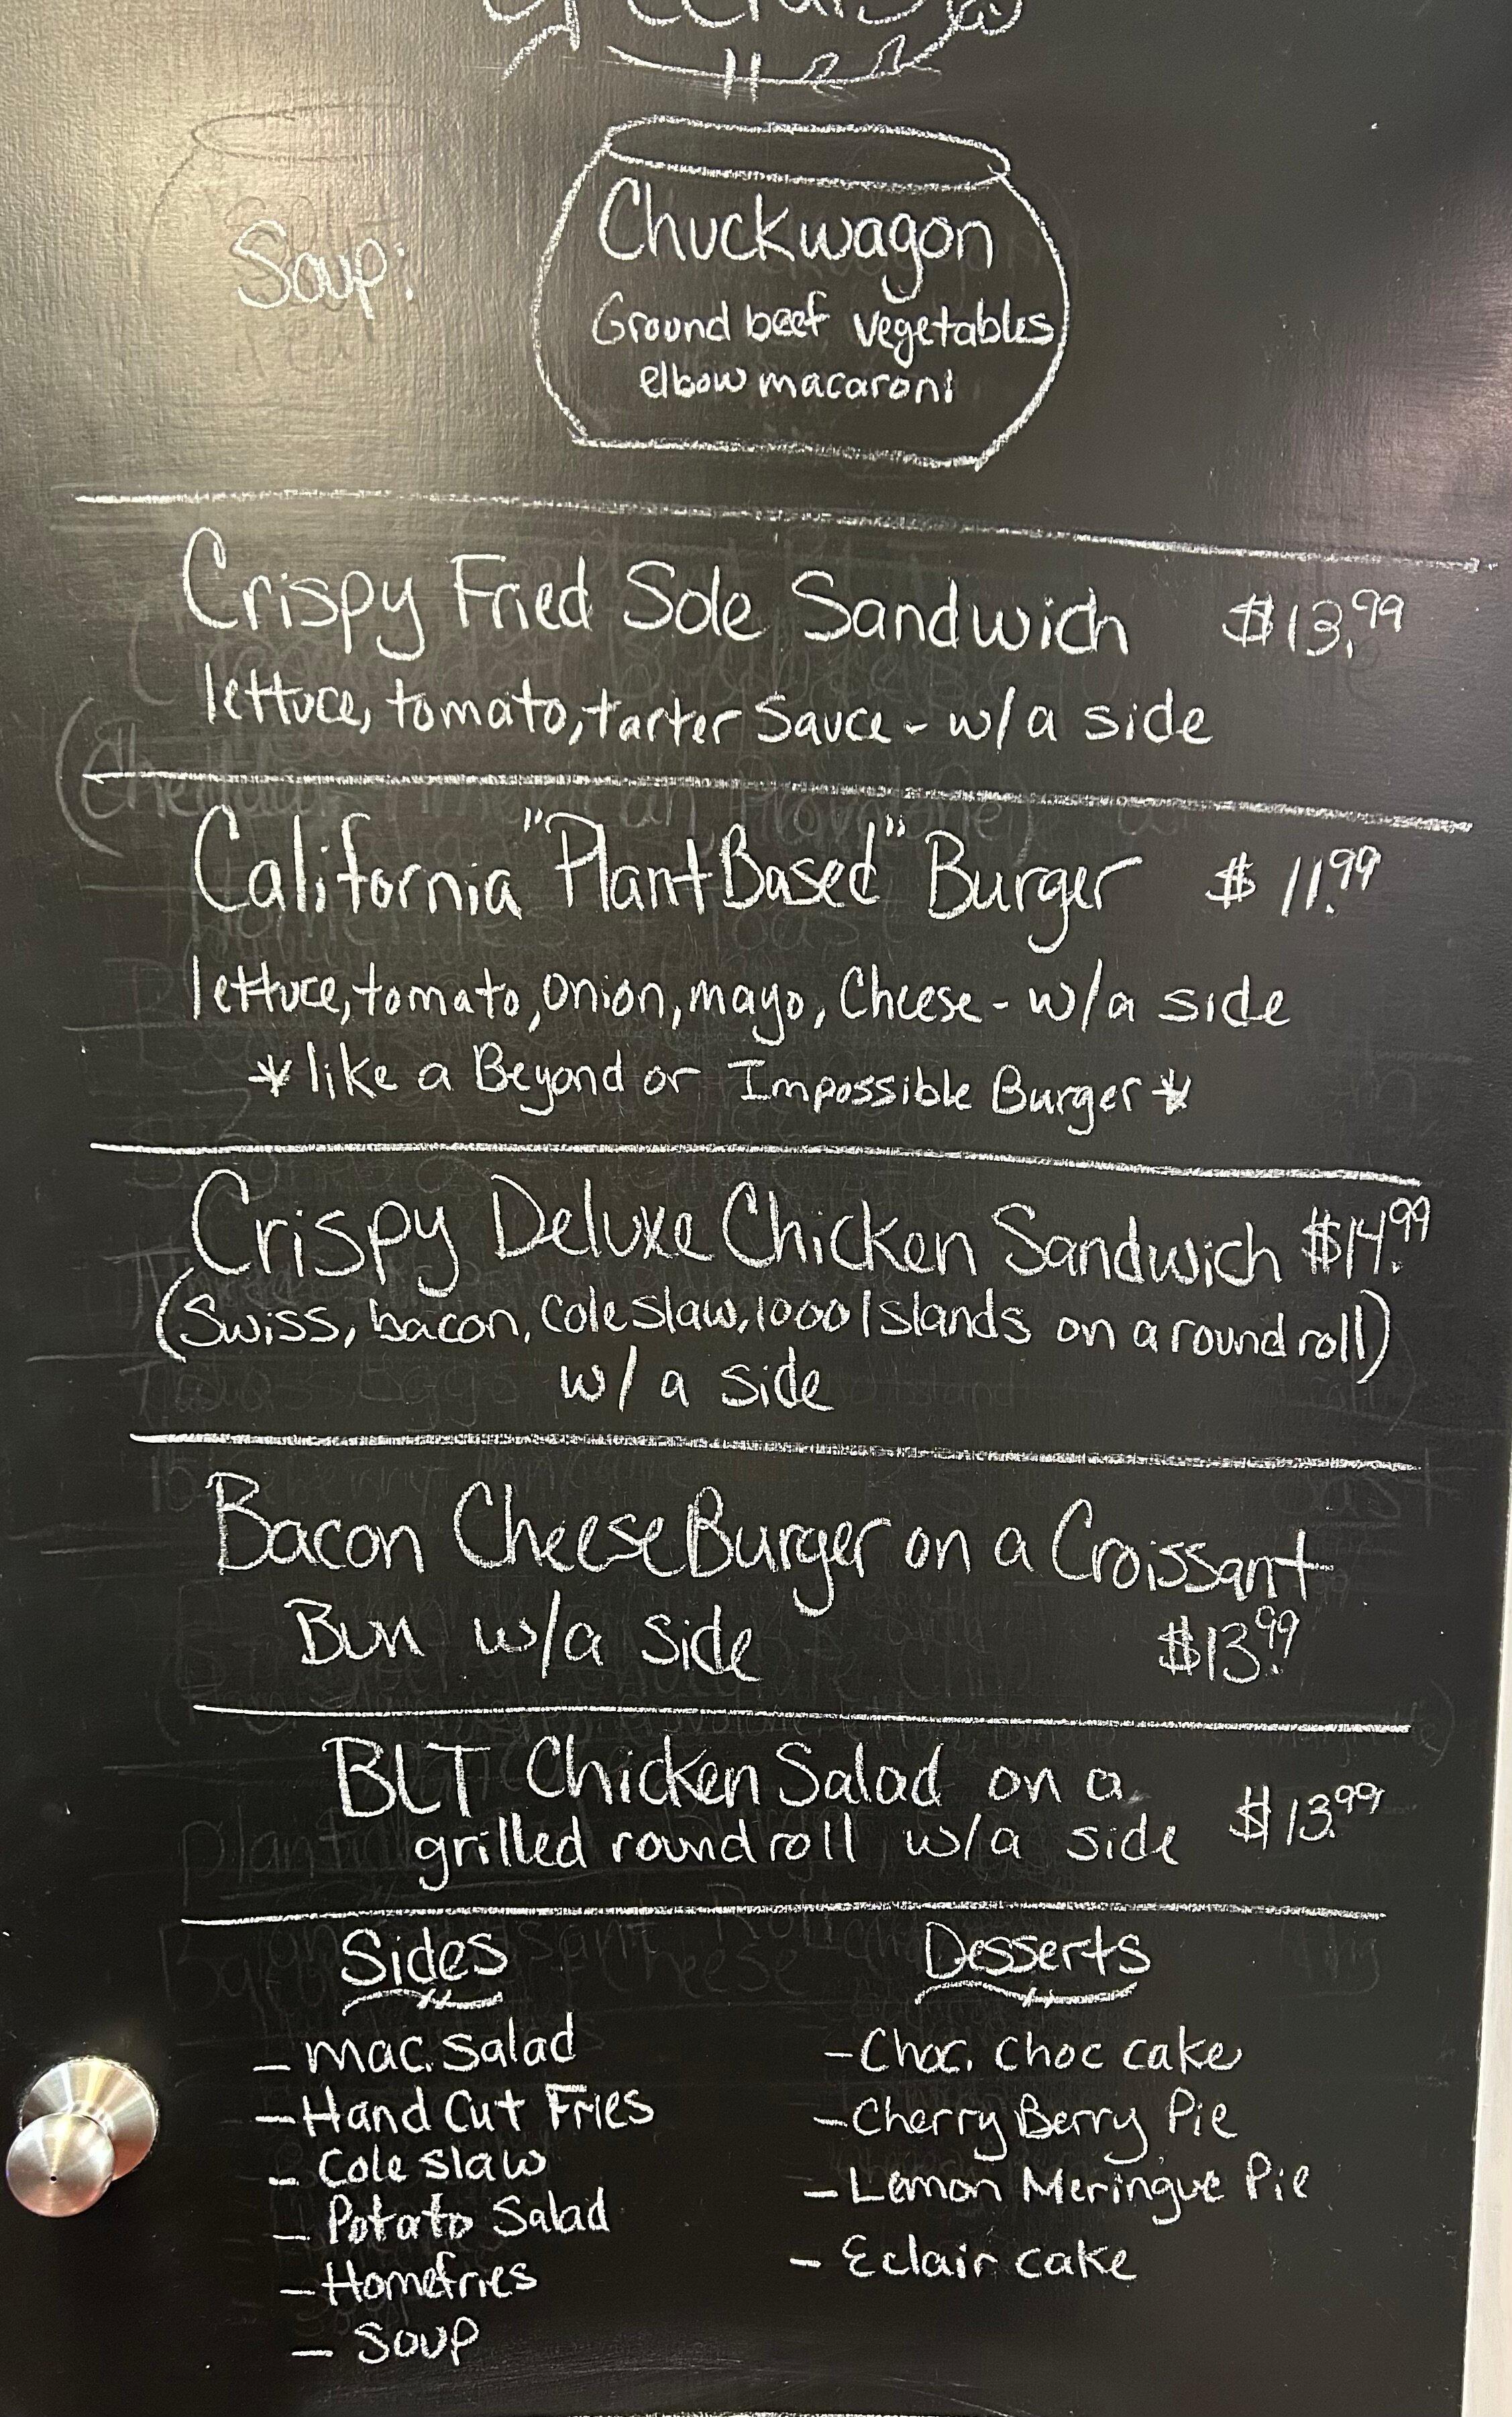 Soup:
Chuckwagon
Ground beef vegetables
elbow macaroni
Crispy Fried Sole Sandwich $13.99
lettuce, tomato, tarter Sauce - w/a side
California "Plant Based" Burger $11.99
lettuce, tomato, onion, mayo, Cheese - w/a side
*like a Beyond or Impossible Burger*
Crispy Deluxe Chicken Sandwich $14.99
(Swiss, bacon, Cole slaw, 1000 Islands on a round roll)
w/ a side
Bacon Cheese Burger on a Croissant
Bun w/a side $13.99
BLT Chicken Salad on a
grilled round roll w/a side $13.99
Sides
- Mac. Salad
- Hand Cut Fries
- Cole slaw
- Potato Salad
- Homefries
- Soup
Desserts
- Choc. Choc cake
- Cherry Berry Pie
- Lemon Meringue Pie
- Eclair cake